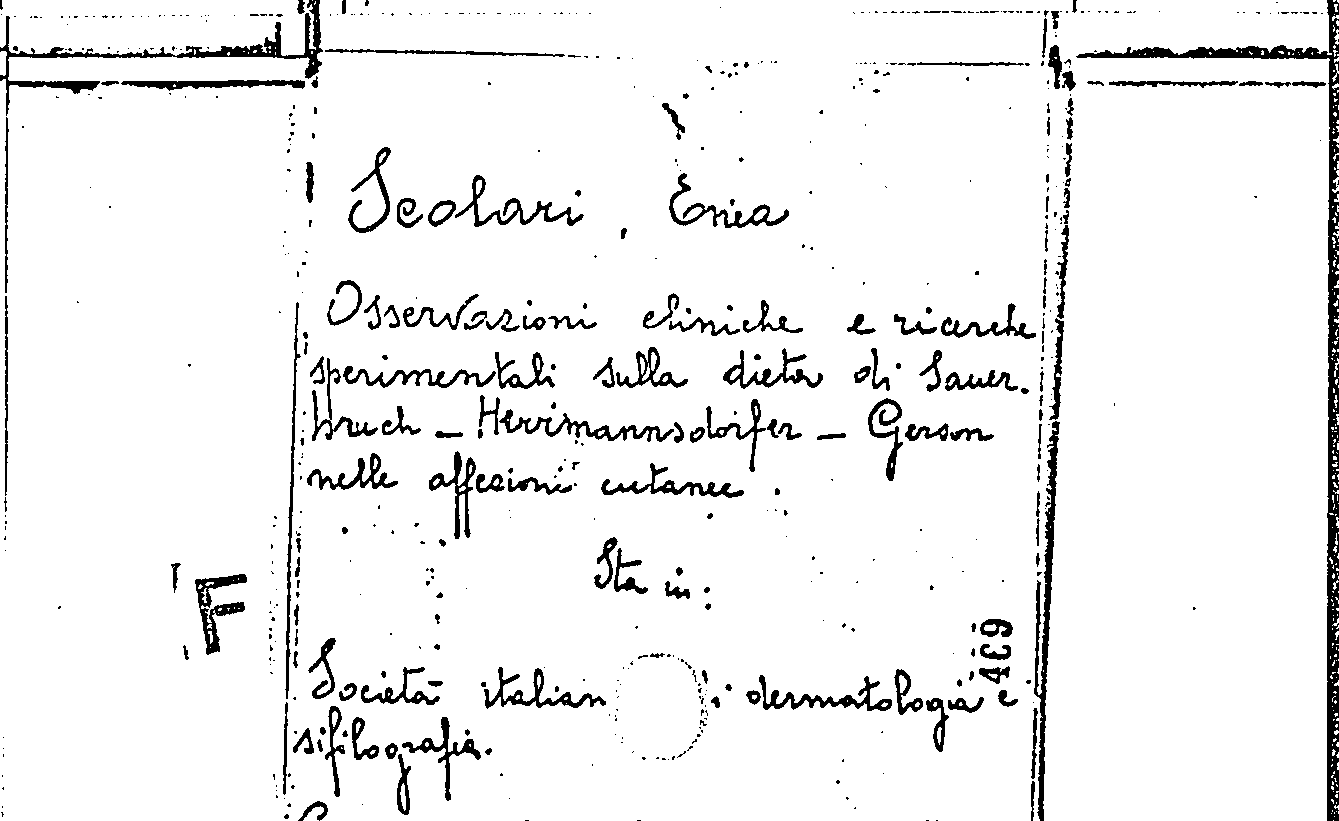 Scolari, Enea
Osservazioni cliniche e ricerche
sperimentali sulla dieta di Sauer.
bruch - Herrmannsdorfer - Gerson
nelle affezioni cutanee.
Sta in:
Società italian i dermatologia e
sifilografia.
F